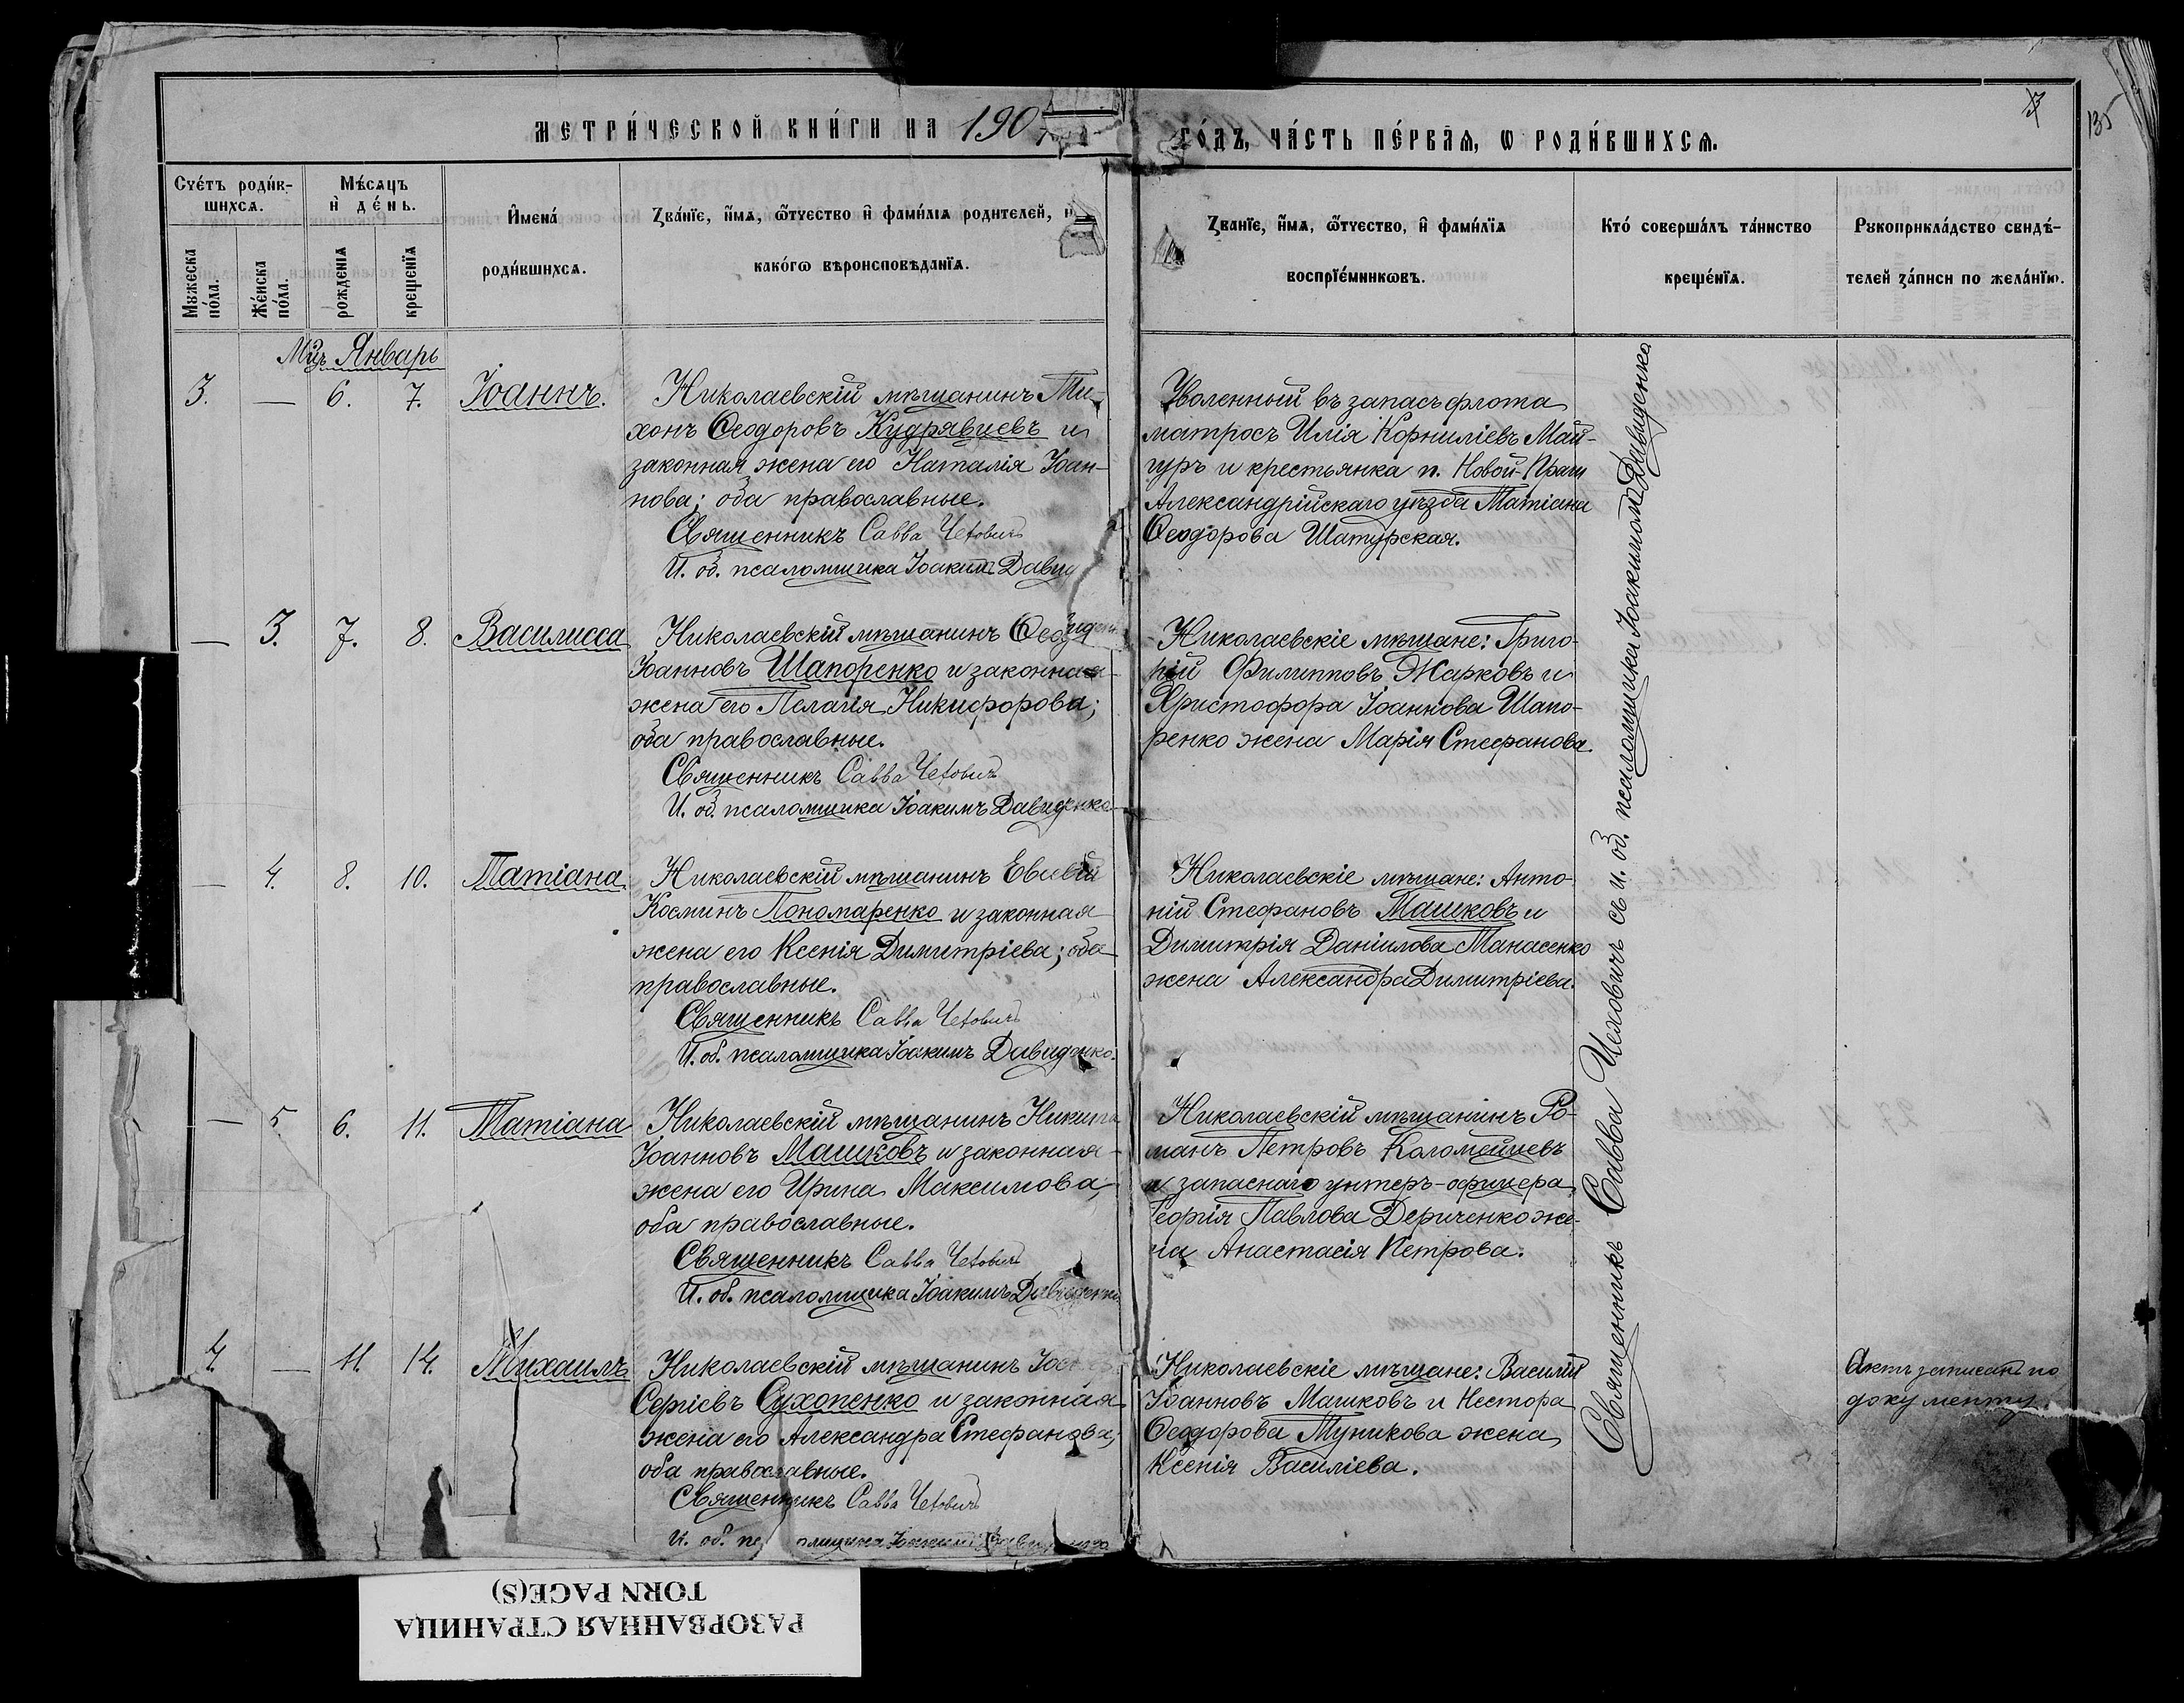 метри́ческой кни́ги на 190
го́дъ, ча́сть пе́рваѧ, ѡ роди́вшихсѧ.
135
Сче́тъ роди́в-
шихсѧ.
Мѣ́сѧцъ
и҆ де́нь.
И҆мена̀
роди́вшихсѧ.
Зва́нїе, и҆́мѧ, ѻ҆́тчество и҆ фами́лїѧ родителей, и
како́гѡ вѣроисповѣданїѧ.
Зва́нїе, и҆́мѧ, ѻ҆́тчество, и҆ фами́лїѧ
воспрїе́мникѡвъ.
Кто́ соверша́лъ та́инство
креще́нїѧ.
Рꙋкоприкла́дство свидѣ́-
телей за́писи по жела́нїю.
Мꙋжеска
по́ла.
Же́нска
по́ла.
рожденїѧ
крещенїѧ
Мцъ Январь
3. — 6. 7. Іоаннъ.
Николаевскій мѣщанинъ Ти-
хонъ Ѳеодоровъ Кудрявцевъ и
законная жена его Наталія Іоан-
нова; оба православные.
Священникъ Савва Чехович
И. об. псаломщика Іоаким Давид
Уволенный въ запасъ флота
матросъ Илія Корниліевъ Май-
гуръ и крестьянка п. Новой-Праги
Александрійскаго уѣзда Татіана
Ѳеодорова Шатурская.
— 3. 7. 8. Василисса
Николаевскій мѣщанинъ Ѳеод
Іоанновъ Шапоренко и законная
жена его Пелагія Никифорова;
оба православные.
Священникъ Савва Чехович
И. об. псаломщика Іоакимъ Давиденко
Николаевскіе мѣщане: Григо-
рій Филипповъ Жарковъ и
Христофора Іоаннова Шапо-
ренко жена Марія Стефанова.
— 4. 8. 10. Татіана.
Николаевскій мѣщанинъ Евсевій
Косминъ Пономаренко и законная
жена его Ксенія Димитріева; оба
православные.
Священникъ Савва Чехович
И. об. псаломщика Іоакимъ Давиденко.
Николаевскіе мѣщане: Анто-
ній Стефановъ Машковъ и
Димитрія Даніилова Манасенко
жена Александра Димитріева.
— 5 6. 11. Татіана
Николаевскій мѣщанинъ Никита
Іоанновъ Машковъ и законная
жена его Ирина Максимова,
оба православные.
Священникъ Савва Чехович
И. об. псаломщика Іоакимъ Давиденко
Николаевскій мѣщанинъ Ро-
манъ Петровъ Коломейцевъ
и запаснаго унтеръ-офицера
Георгія Павлова Дериченко же-
на Анастасія Петрова.
4. — 11. 14. Михаилъ
Николаевскій мѣщанинъ
Сергіевъ Сухопенко и законная
жена его Александра Стефанова,
оба православные.
Священникъ Савва Чехович
И. об. пс ломщика Іоаким
Николаевскіе мѣщане: Василій
Іоанновъ Машковъ и Нестора
Ѳеодорова Туникова жена
Ксенія Василіева.
Священникъ Савва Чехович съ и. об. псаломщика Іоакимомъ Давиденко
Актъ записанъ по
документу.
РАЗОРВАННАЯ СТРАНИЦА
TORN PAGE(S)